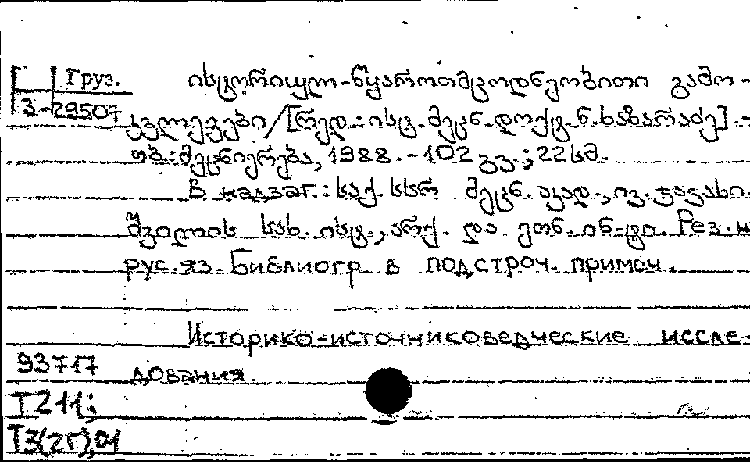 Груз.
3-29507
ისტორიულ-წყაროთმცოდნეობითი გამო-
კვლევები/[რედ.: ისტ. მეცნ. დოქტ. ნ. ხაზარაძე].-
თბ.: მეცნიერება, 1988.-102 გვ.; 22 სმ.
В надзаг.: საქ. სსრ მეცნ. აკად., ივ. ჯავახი-
შვილის სახ. ისტ., არქ. და ეთნ. ინ-ტი. Рез. н
рус. яз. Библиогр в подстроч. примеч.
Историко-источниковедческие иссле-
дования
93717
Т211;
Т3(2Г),01